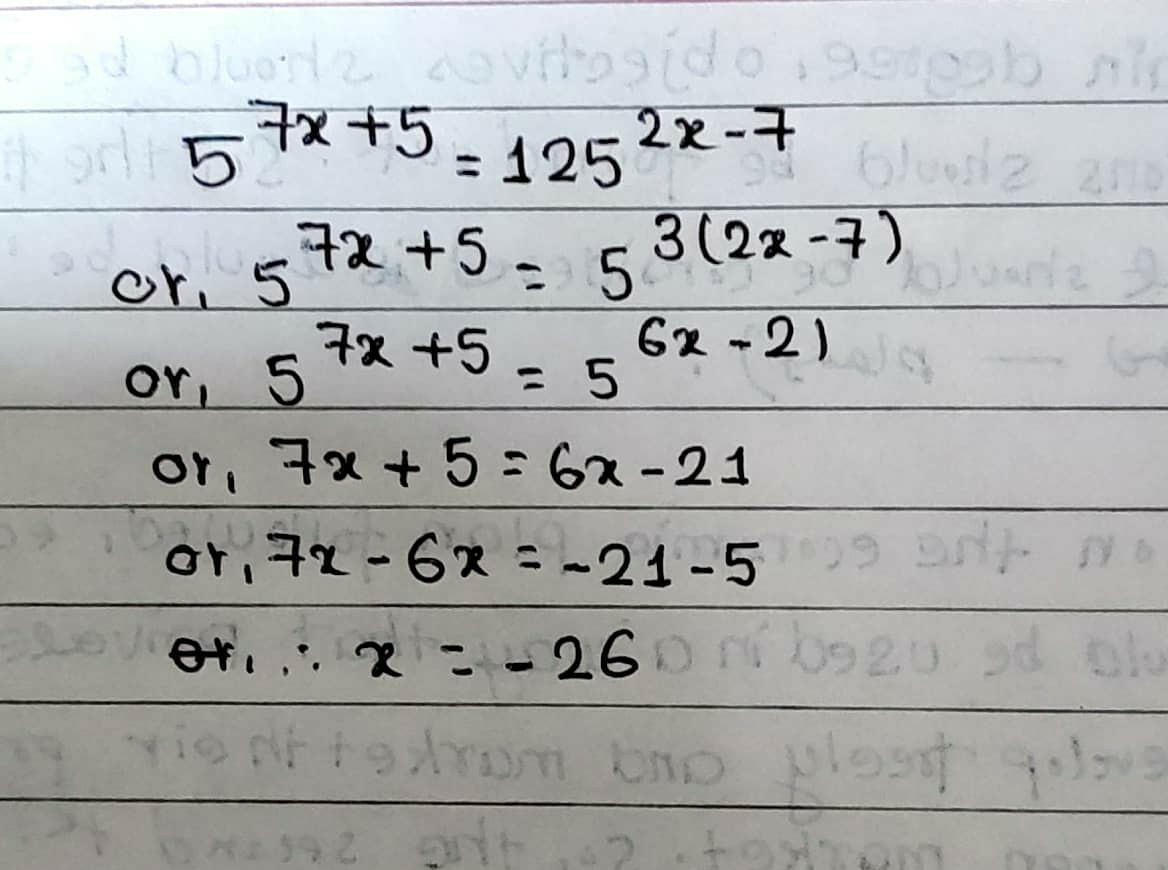 5^{7x+5} = 125^{2x-7}
or, 5^{7x+5} = 5^{3(2x-7)}
or, 5^{7x+5} = 5^{6x-21}
or, 7x + 5 = 6x - 21
or, 7x - 6x = -21 - 5
∴ x = -26